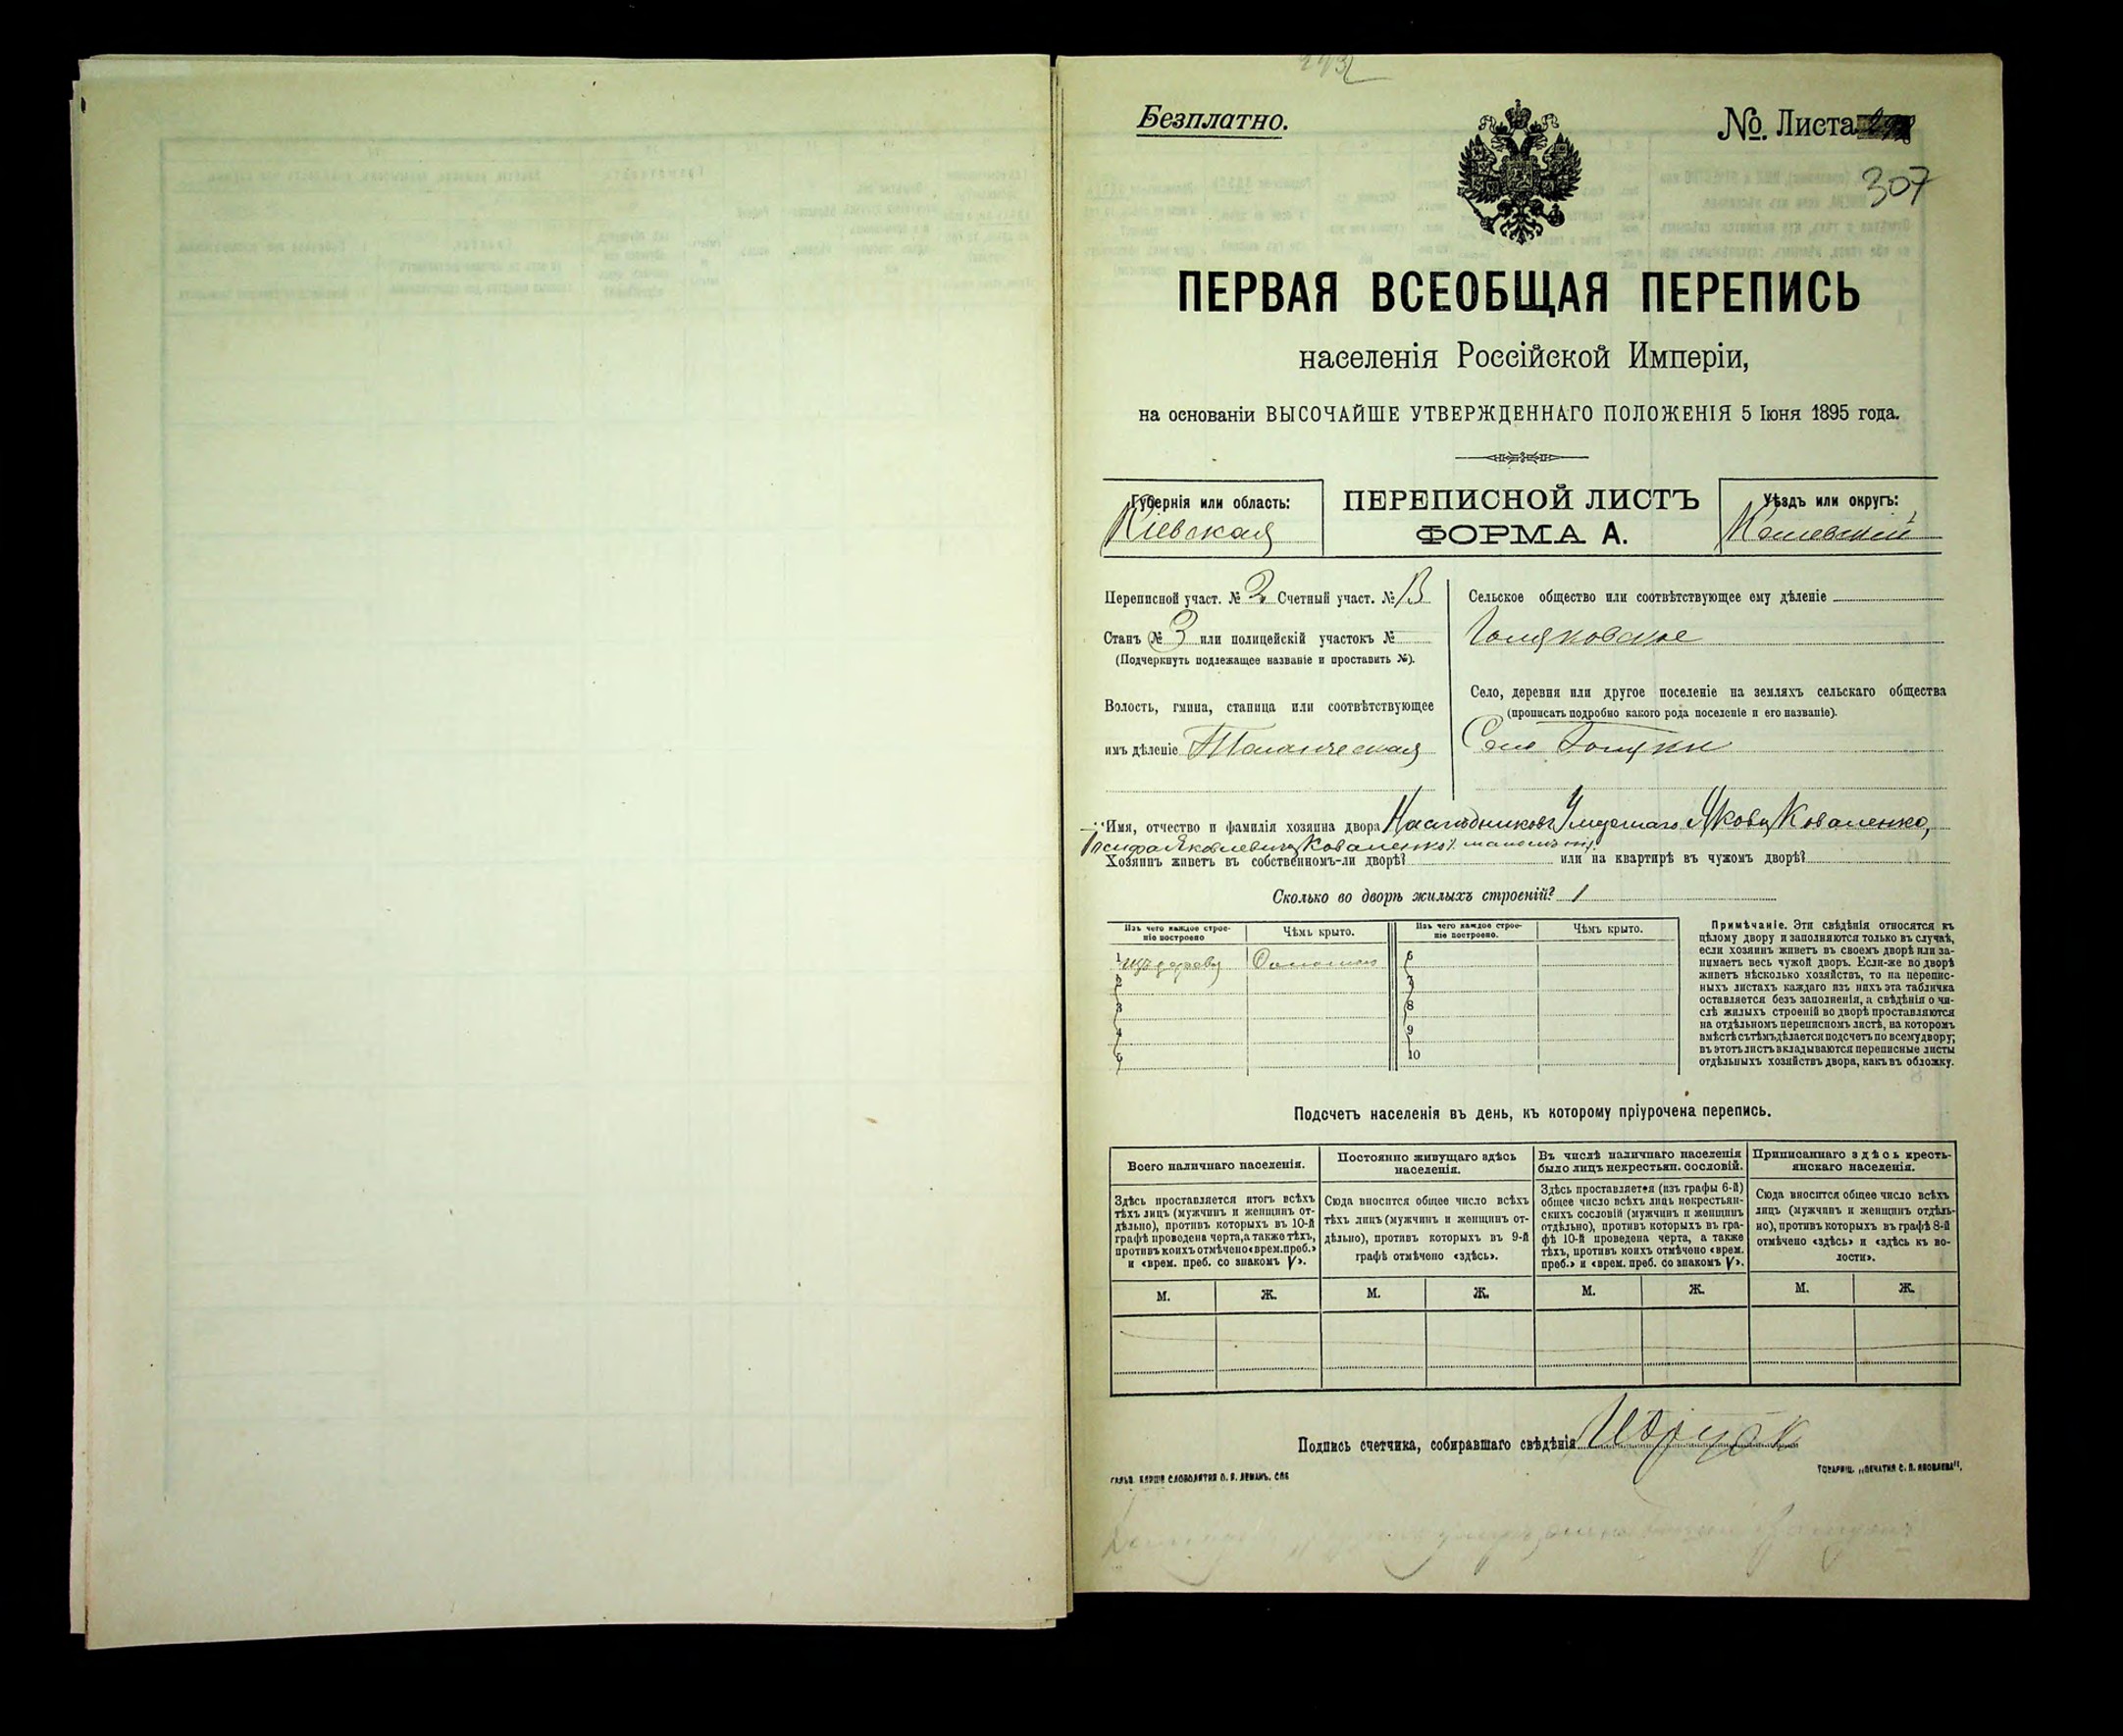 Безплатно.
№. Листа
307
ПЕРВАЯ ВСЕОБЩАЯ ПЕРЕПИСЬ
населенія Россійской Имперіи,
на основаніи ВЫСОЧАЙШЕ УТВЕРЖДЕННАГО ПОЛОЖЕНІЯ 5 Іюня 1895 года.
Губернія или область:
Кіевская
ПЕРЕПИСНОЙ ЛИСТЪ
ФОРМА А.
Уѣздъ или округъ:
Переписной участ. № 3 Счетный участ. №
Станъ № 3 или полицейскій участокъ №
(Подчеркнуть подлежащее названіе и проставить №).
Волость, гмина, станица или соотвѣтствующее
имъ дѣленіе
Сельское общество или соотвѣтствующее ему дѣленіе
Село, деревня или другое поселеніе на земляхъ сельскаго общества
(прописать подробно какого рода поселеніе и его названіе).
Село
Имя, отчество и фамилія хозяина двора Наслѣдниковъ Умершаго Якова Коваленко,
Яковлевича Коваленко
Хозяинъ живетъ въ собственномъ-ли дворѣ? или на квартирѣ въ чужомъ дворѣ?
Сколько во дворѣ жилыхъ строеній? 1
Изъ чего каждое строе-
ніе построено
Чѣмъ крыто.
Изъ чего каждое строе-
ніе построено.
Чѣмъ крыто.
1 изъ дерева Соломою
2
3
4
5
6
7
8
9
10
Примѣчаніе. Эти свѣдѣнія относятся къ
цѣлому двору и заполняются только въ случаѣ,
если хозяинъ живетъ въ своемъ дворѣ или за-
нимаетъ весь чужой дворъ. Если-же во дворѣ
живетъ нѣсколько хозяйствъ, то на перепис-
ныхъ листахъ каждаго изъ нихъ эта табличка
оставляется безъ заполненія, а свѣдѣнія о чи-
слѣ жилыхъ строеній во дворѣ проставляются
на отдѣльномъ переписномъ листѣ, на которомъ
вмѣстѣ съ тѣмъ дѣлается подсчетъ по всему двору;
въ этотъ листъ вкладываются переписные листы
отдѣльныхъ хозяйствъ двора, какъ въ обложку.
Подсчетъ населенія въ день, къ которому пріурочена перепись.
Всего наличнаго населенія.
Здѣсь проставляется итогъ всѣхъ
тѣхъ лицъ (мужчинъ и женщинъ от-
дѣльно), противъ которыхъ въ 10-й
графѣ проведена черта, а также тѣхъ,
противъ коихъ отмѣчено «врем. преб.»
и «врем. преб. со знакомъ V».
Постоянно живущаго здѣсь
населенія.
Сюда вносится общее число всѣхъ
тѣхъ лицъ (мужчинъ и женщинъ от-
дѣльно), противъ которыхъ въ 9-й
графѣ отмѣчено «здѣсь».
Въ числѣ наличнаго населенія
было лицъ некрестьян. сословій.
Здѣсь проставляется (изъ графы 6-й)
общее число всѣхъ лицъ некрестьян-
скихъ сословій (мужчинъ и женщинъ
отдѣльно), противъ которыхъ въ гра-
фѣ 10-й проведена черта, а также
тѣхъ, противъ коихъ отмѣчено «врем.
преб.» и «врем. преб. со знакомъ V».
Приписаннаго здѣсь кресть-
янскаго населенія.
Сюда вносится общее число всѣхъ
лицъ (мужчинъ и женщинъ отдѣль-
но), противъ которыхъ въ графѣ 8-й
отмѣчено «здѣсь» и «здѣсь къ во-
лости».
М. Ж. М. Ж. М. Ж. М. Ж.
Подпись счетчика, собиравшаго свѣдѣнія
ТОВАРИЩ. „ПЕЧАТНЯ С. П. ЯКОВЛЕВА".